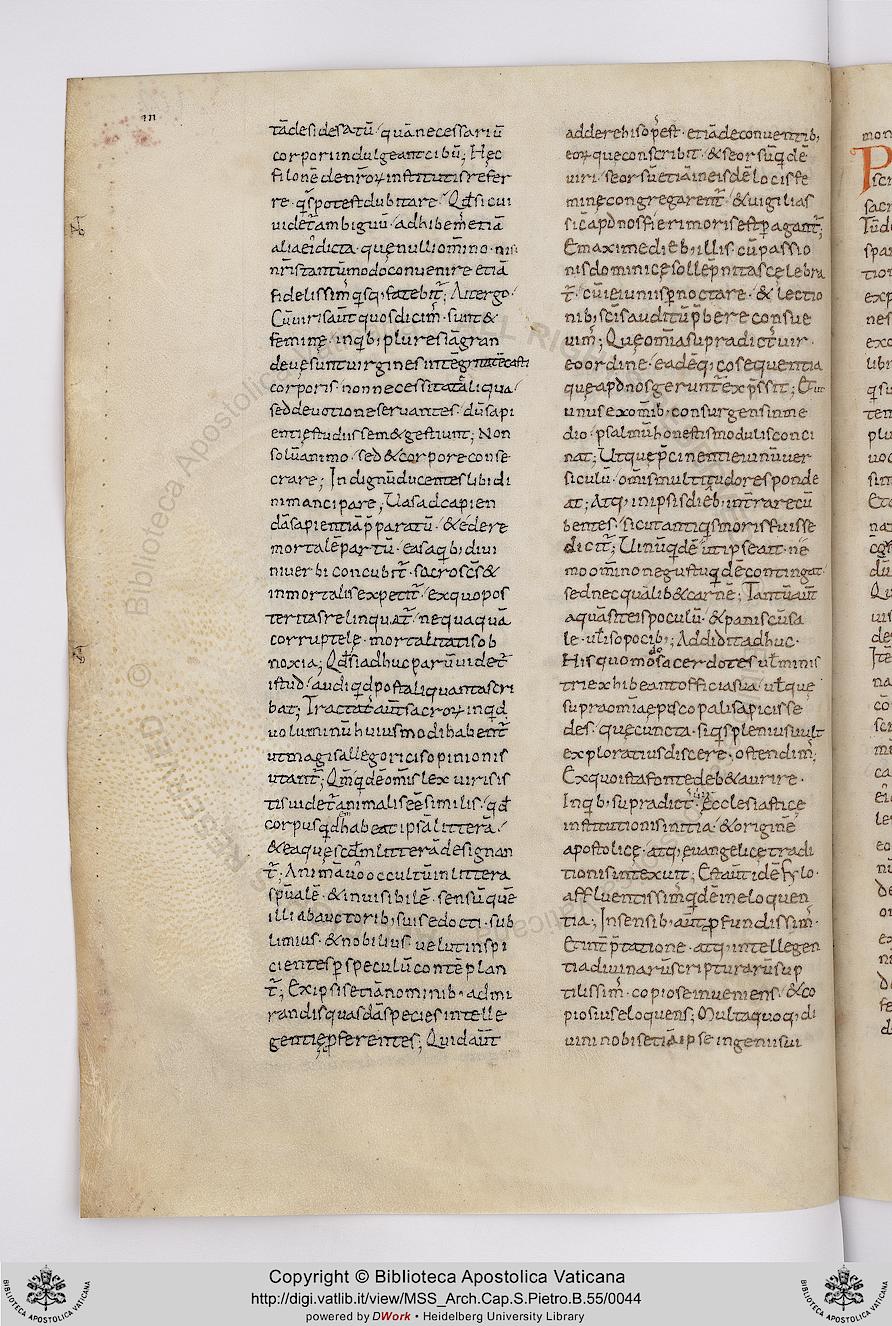 tādesiderātū quānecessariū
corporiindulgeantcibū; Hęc
filonēdenr̄oꝝinstitutisrefer
re q̄spotestdubitare. Qd̄sicui
uidet̄ambiguū adhibem̄etiā
aliaei᾽dicta quęnulliom̄ino nisi
nr̄istantūmodoconuenire etiā
fidelissim̄qsq; fatebit̄; Aitergo
Cūuirisaūtquosdicim̄ sunt&
feminę inqb;pluresiāgran
deuęsuntuirginesintegritatēcasti
corporis nonnecessitatealiqua
seddeuotioneseruantes dūsapi
entięstudiissem&gestiunt; Non
solūanimo sed&corporeconse
crare; Indignūducenteslibidi
nimancipare; Uasadcapien
dāsapientiāp̄paratū &edere
mortalēpartū easaqb;diui
niuerbiconcubit̄ sacroscs̄&
inmortalisexpetit̄ exquopos
teritasrelinquat̄ nequaquā
corruptelę mortalitatisob
noxia; Qd̄siadhucparūuidet̄
istud audiqdpostaliquantascri
bat; Tractat̄aūtsacroꝝinqd̄
uoluminūhuiusmodihabent̄
utmagisallegoricisopinionis
utant̄; Qm̄qdēomislexuirisis
tisuidet̄animaliēēsimilis qd̄
corpusqdhabeatipsālitterā
&eaquęscdmlitterādesignan
t̄; Animāuōoccultūinlittera
spūalē &inuisibilē sensūquē
illiabauctorib;suisedocti sub
limius &nobilius uelutinspi
cientespspeculūcontēplan
t̄; Exipsisetiānominib;admi
randisquasdāspeciesintelle
gentięproferentes; Quidaūt
adderehisopest etiādeconuentib;
eoꝝqueconscribit &seorsūqdē
uiri seorsūetiāineisdēlocisfe
minęcongregarent̄ &uigilias
sic̄apdnosfierimorisestpagant̄;
Emaximediebillis cūpassio
nisdominicęsollēpnitascęlebra
t̄ cūieiuniispnoctare &lectio
nib;scisauditūp̄bereconsue
uim̄; Quęom̄iasupradict̄uir
eoordine eadēq;cōsequentia
queapdnosgerunt̄exp̄ssit; Etut
unusexomib;consurgensinme
dio psalmūhonestismodulisconci
nat; Utquep̄cinentieiunūuer
siculū omismultitudoresponde
at; Atq;inipsisdieb;intrarecū
bentes sicutantiqismorisfuisse
dicit̄; Uinūqdēutipseait ne
moom̄inonegustuqdēcontingat
sednecqualib&carnē; Tantūaūt
aquasiteispoculū &paniscūsa
le ut̄isopocib; Addiditadhuc
Hisquomodosacerdotesut̄minis
triexhibeantofficiasua ut̄que
supraomiaepiscopalisapicisse
des quęcuncta siqspleniusuult
exploratiusdiscere ostendim̄;
Exquoistafontedeb&aurire
Inqb;supradict̄ ęcclesiasticę
institutionisinitia &originē
apostolicę atq;euangelicętradi
tionisintexuit; Estaūtidēfylo
affluentissim̄qdēineloquen
tia; Insensib;aūtprofundissim̄
Etint̄p̄tatione atq;intellegen
tiadiuinarūscripturarūsup
tilissim̄ copioseinueniens &co
piosiuseloquens; Multaquoq;di
uininobisetiāipseingeniisui
Copyright © Biblioteca Apostolica Vaticana
http://digi.vatlib.it/view/MSS_Arch.Cap.S.Pietro.B.55/0044
powered by DWork • Heidelberg University Library